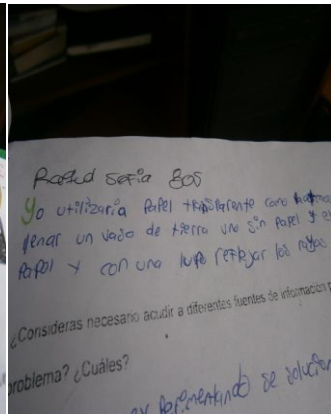 sería 805
Yo utilizaría Papel transparente como
llenar un vaso de tierra uno sin papel y
Papel y con una lupa reflejar los rayos
¿Consideras necesario acudir a diferentes fuentes de información
problema? ¿Cuáles?
se solucion